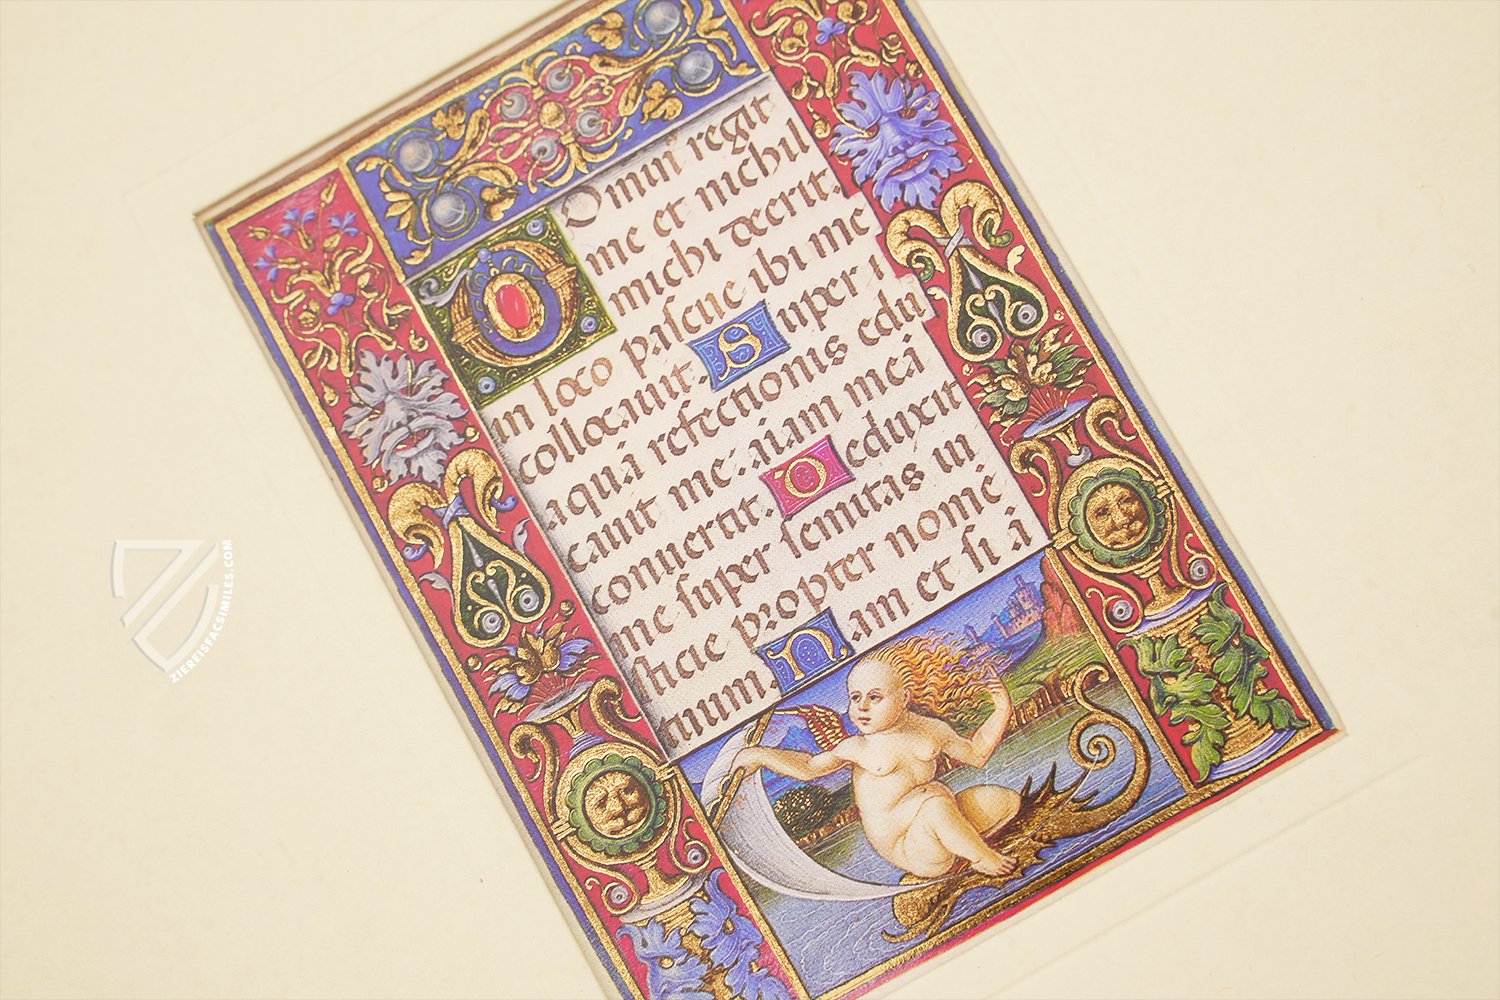 DOminꝰ regit
me et nichil
michi deerit.
in loco paſcue ibi me
collocauit. Super
aquā refectionis edu
cauit me: aīam meā
conuertit. Deduxit
me ſuper ſemitas iu
ſticie propter nomē
ſuum. Nam et ſi ā
ZIEREISFACSIMILES.COM